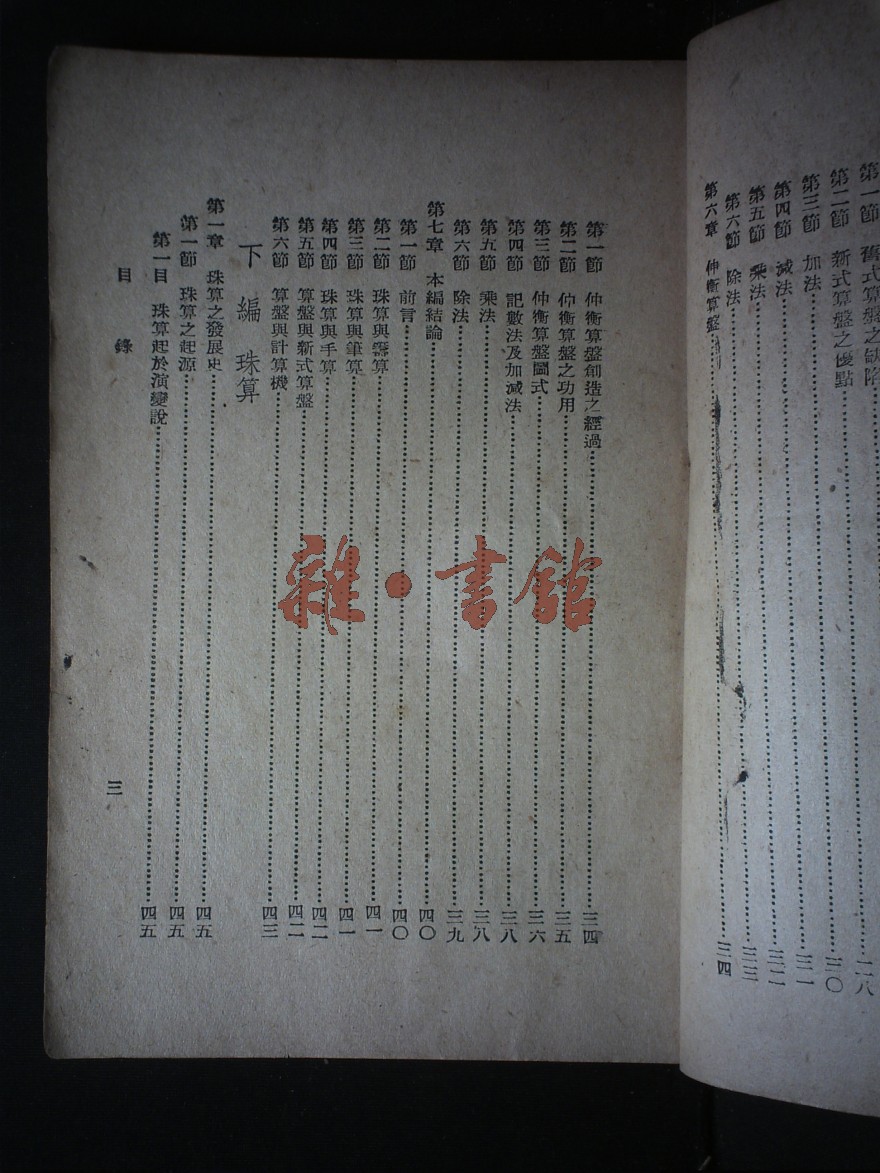 第一節 舊式算盤之缺陷⋯⋯二八
第二節 新式算盤之優點⋯⋯三〇
第三節 加法⋯⋯三一
第四節 減法⋯⋯三二
第五節 乘法⋯⋯三三
第六節 除法⋯⋯
第六章 仲衡算盤⋯⋯三四
第一節 仲衡算盤創造之經過⋯⋯三四
第二節 仲衡算盤之功用⋯⋯三五
第三節 仲衡算盤圖式⋯⋯三六
第四節 記數法及加減法⋯⋯三八
第五節 乘法⋯⋯三八
第六節 除法⋯⋯三九
第七章 本編結論⋯⋯四〇
第一節 前言⋯⋯四〇
第二節 珠算與籌算⋯⋯四一
第三節 珠算與筆算⋯⋯四一
第四節 珠算與手算⋯⋯四二
第五節 算盤與新式算盤⋯⋯四二
第六節 算盤與計算機⋯⋯四三
下編 珠算
第一章 珠算之發展史⋯⋯四五
第一節 珠算之起源⋯⋯四五
第一目 珠算起於演變說⋯⋯四五
目錄 三
雜·書館